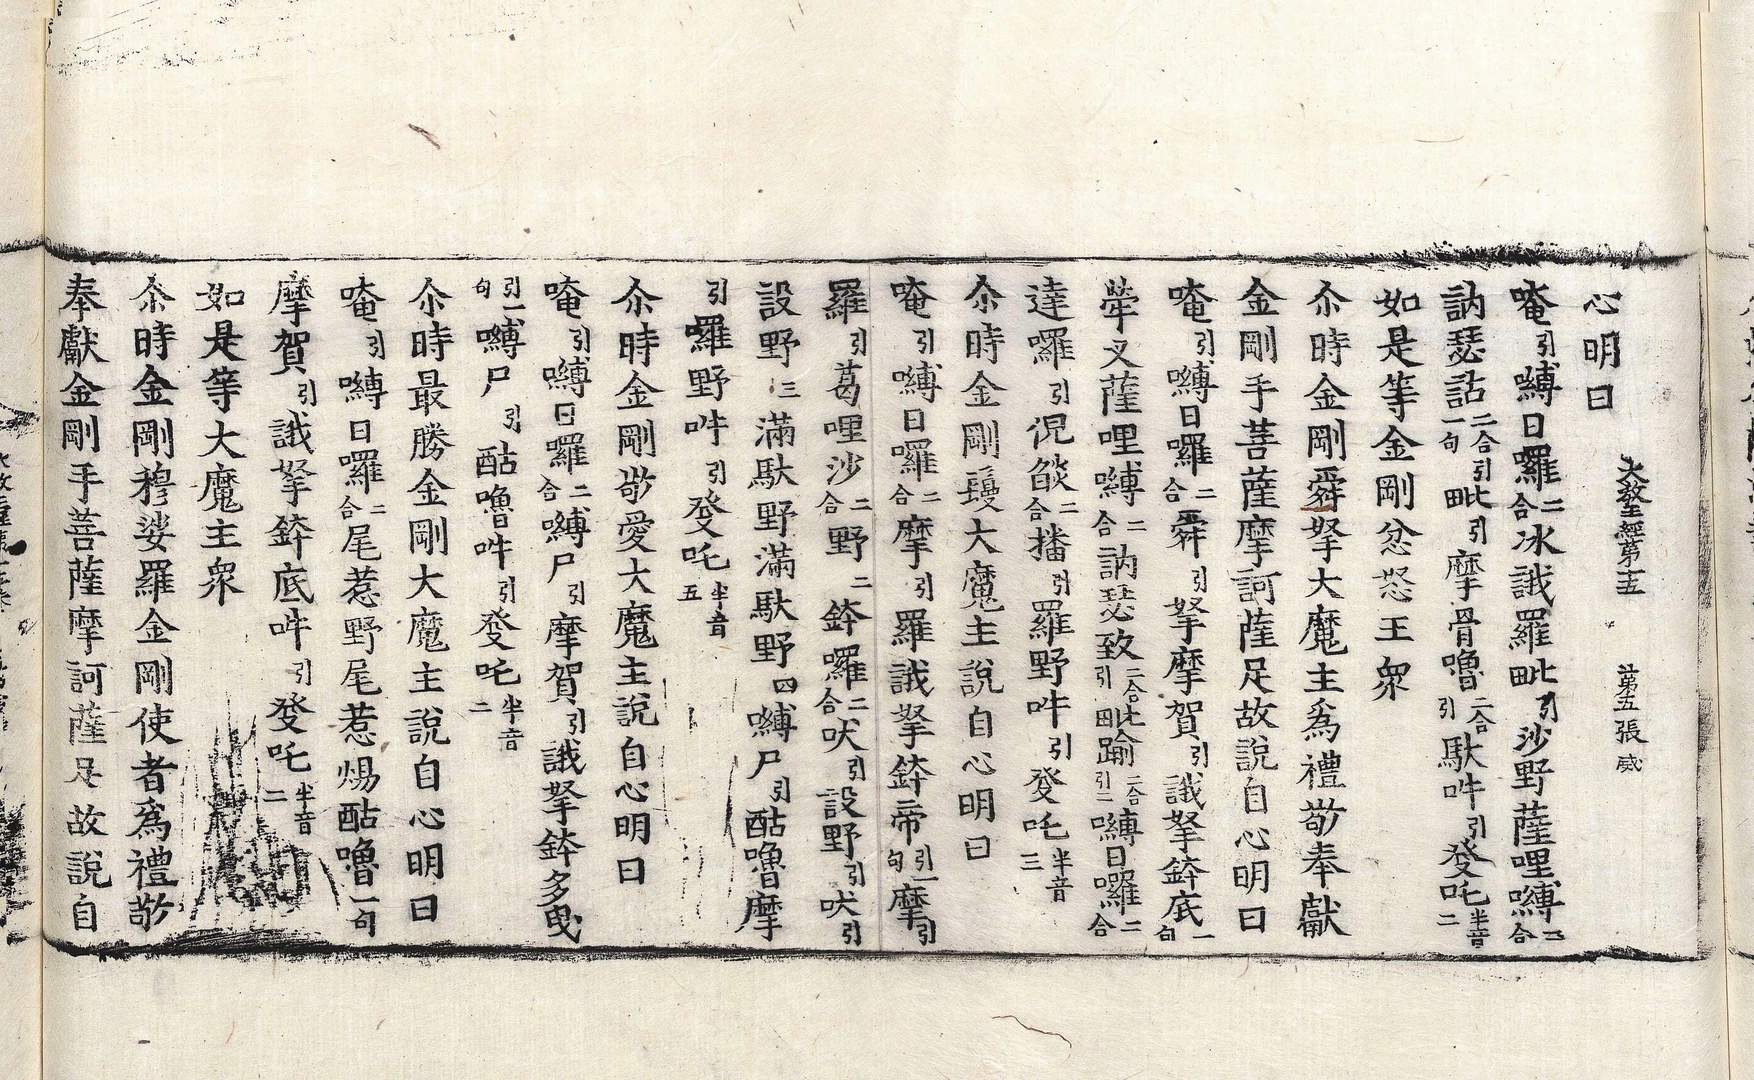 大教王經第十五　　第五張　咸
心明曰
唵引嚩日囉二合冰誐羅毗引沙野薩哩嚩二合
訥瑟詀二合引一句毗引摩骨嚕二合引馱吽引發吒半音二
如是等金剛忿怒王衆
尒時金剛舜拏大魔主爲禮敬奉獻
金剛手菩薩摩訶薩足故說自心明曰
唵引嚩日囉二合舜引拏摩賀引誐拏鉢底一句
犖叉薩哩嚩二合訥瑟致二合引毗踰二合引二嚩日囉二合
達囉引倪燄二合播引羅野吽引發吒半音三
尒時金剛鬘大魔主說自心明曰
唵引嚩日囉二合摩引羅誐拏鉢帝引一句摩引
羅引葛哩沙二合野二鉢囉二合吠引設野引吠引
設野三滿馱野滿馱野四嚩尸引酤嚕摩
引囉野吽引發吒半音五
尒時金剛敬愛大魔主說自心明曰
唵引嚩日囉二合嚩尸引摩賀引誐拏鉢多曳
引一句嚩尸引酤嚕吽引發吒半音二
尒時最勝金剛大魔主說自心明曰
唵引嚩日囉二合尾惹野尾惹煬酤嚕一句
摩賀引誐拏鉢底吽引發吒半音二
如是等大魔主衆
尒時金剛穆娑羅金剛使者爲禮敬
奉獻金剛手菩薩摩訶薩足故說自